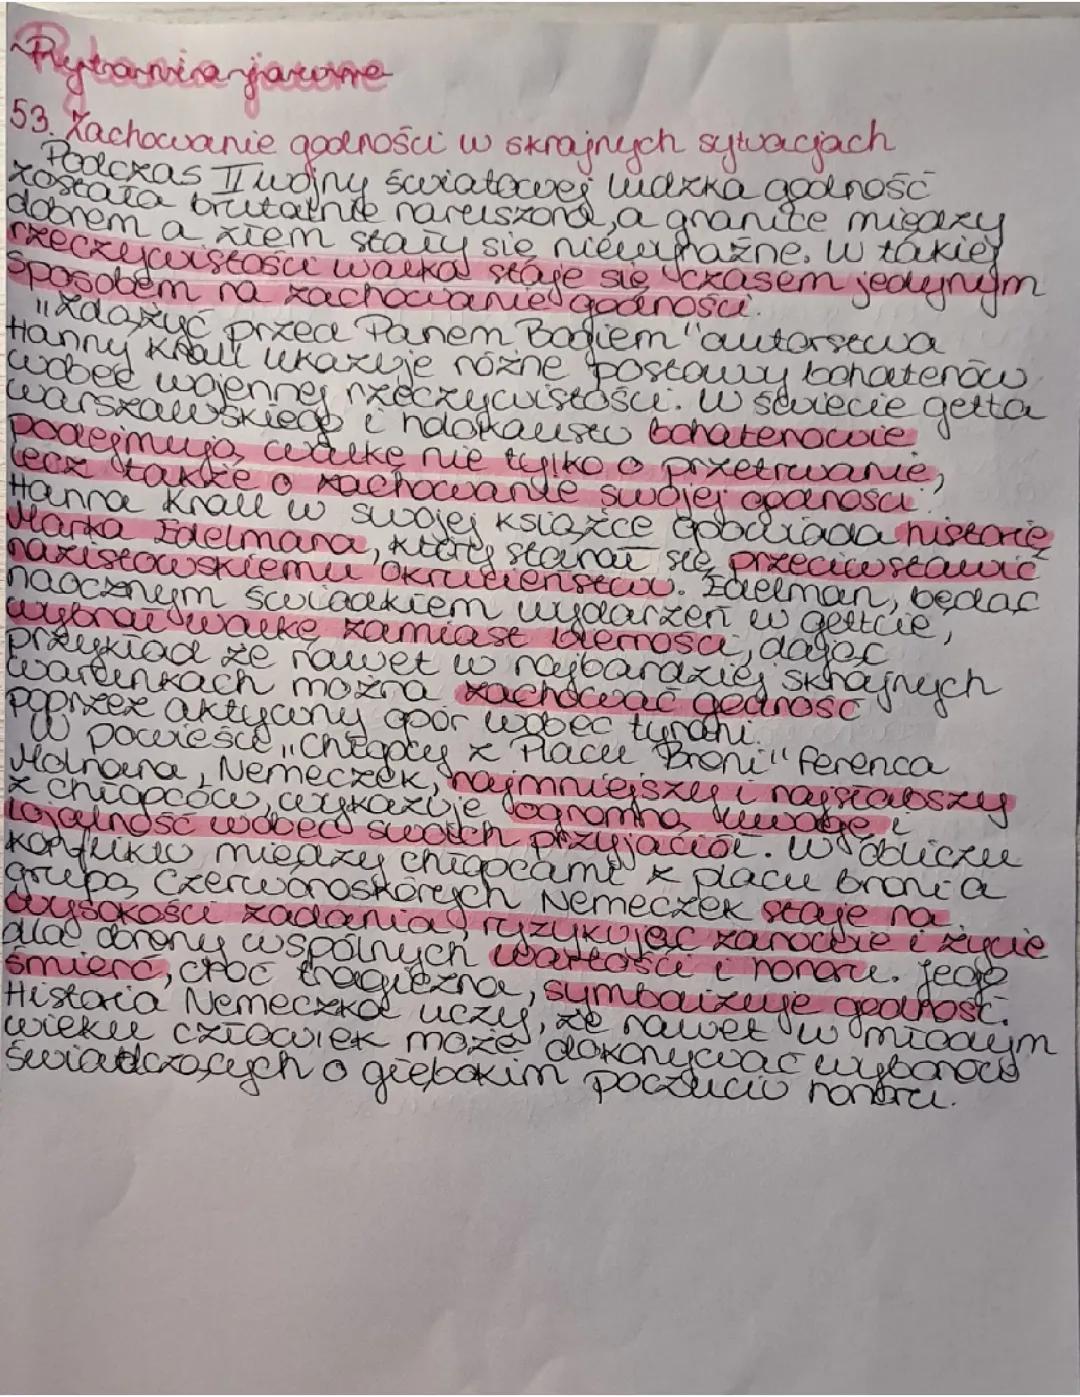 Pytania jawne
53. Zachowanie godności w skrajnych sytuacjach
Podczas II wojny światowej ludzka godność
została brutalnie naruszona, a granice między
dobrem a złem stały się niewyraźne. W takiej
rzeczywistości walka staje się czasem jedynym
sposobem na zachowanie godności.
"Zdążyć przed Panem Bogiem" autorstwa
Hanny Krall ukazuje różne postawy bohaterów
wobec wojennej rzeczywistości. W świecie getta
warszawskiego i holokaustu bohaterowie
podejmują walkę nie tylko o przetrwanie,
lecz także o zachowanie swojej godności.
Hanna Krall w swojej książce opowiada historię
Marka Edelmana, który starał się przeciwstawić
nazistowskiemu okrucieństwu. Edelman, będąc
naocznym świadkiem wydarzeń w getcie,
wybrał walkę zamiast bierności, dając
przykład że nawet w najbardziej skrajnych
warunkach można zachować godność
poprzez aktywny opór wobec tyranii.
W powieści "Chłopcy z Placu Broni" Ferenca
Molnara, Nemeczek, najmniejszy i najsłabszy
z chłopców, wykazuje ogromną uwagę i
lojalność wobec swoich przyjaciół. W obliczu
konfliktu między chłopcami z placu broni a
grupą Czerwonoskórych Nemeczek staje na
wysokości zadania, ryzykując zdrowie i życie
dla obrony wspólnych wartości i honoru. Jego
śmierć, choć tragiczna, symbolizuje godność.
Historia Nemeczka uczy, że nawet w młodym
wieku człowiek może dokonywać wyborów
świadczących o głębokim poczuciu honoru.